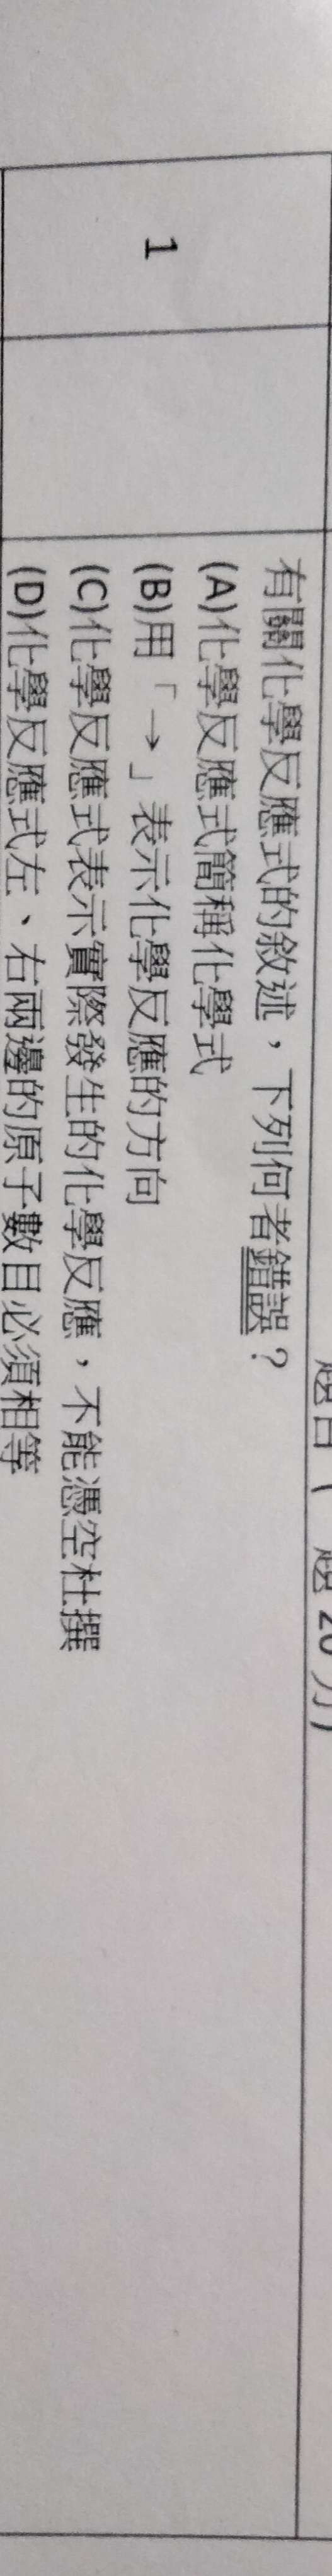 題 20 分)
1
有關化學反應式的敘述，下列何者錯誤？
(A)化學反應式簡稱化學式
(B)用「→」表示化學反應的方向
(C)化學反應式表示實際發生的化學反應，不能憑空杜撰
(D)化學反應式左、右兩邊的原子數目必須相等